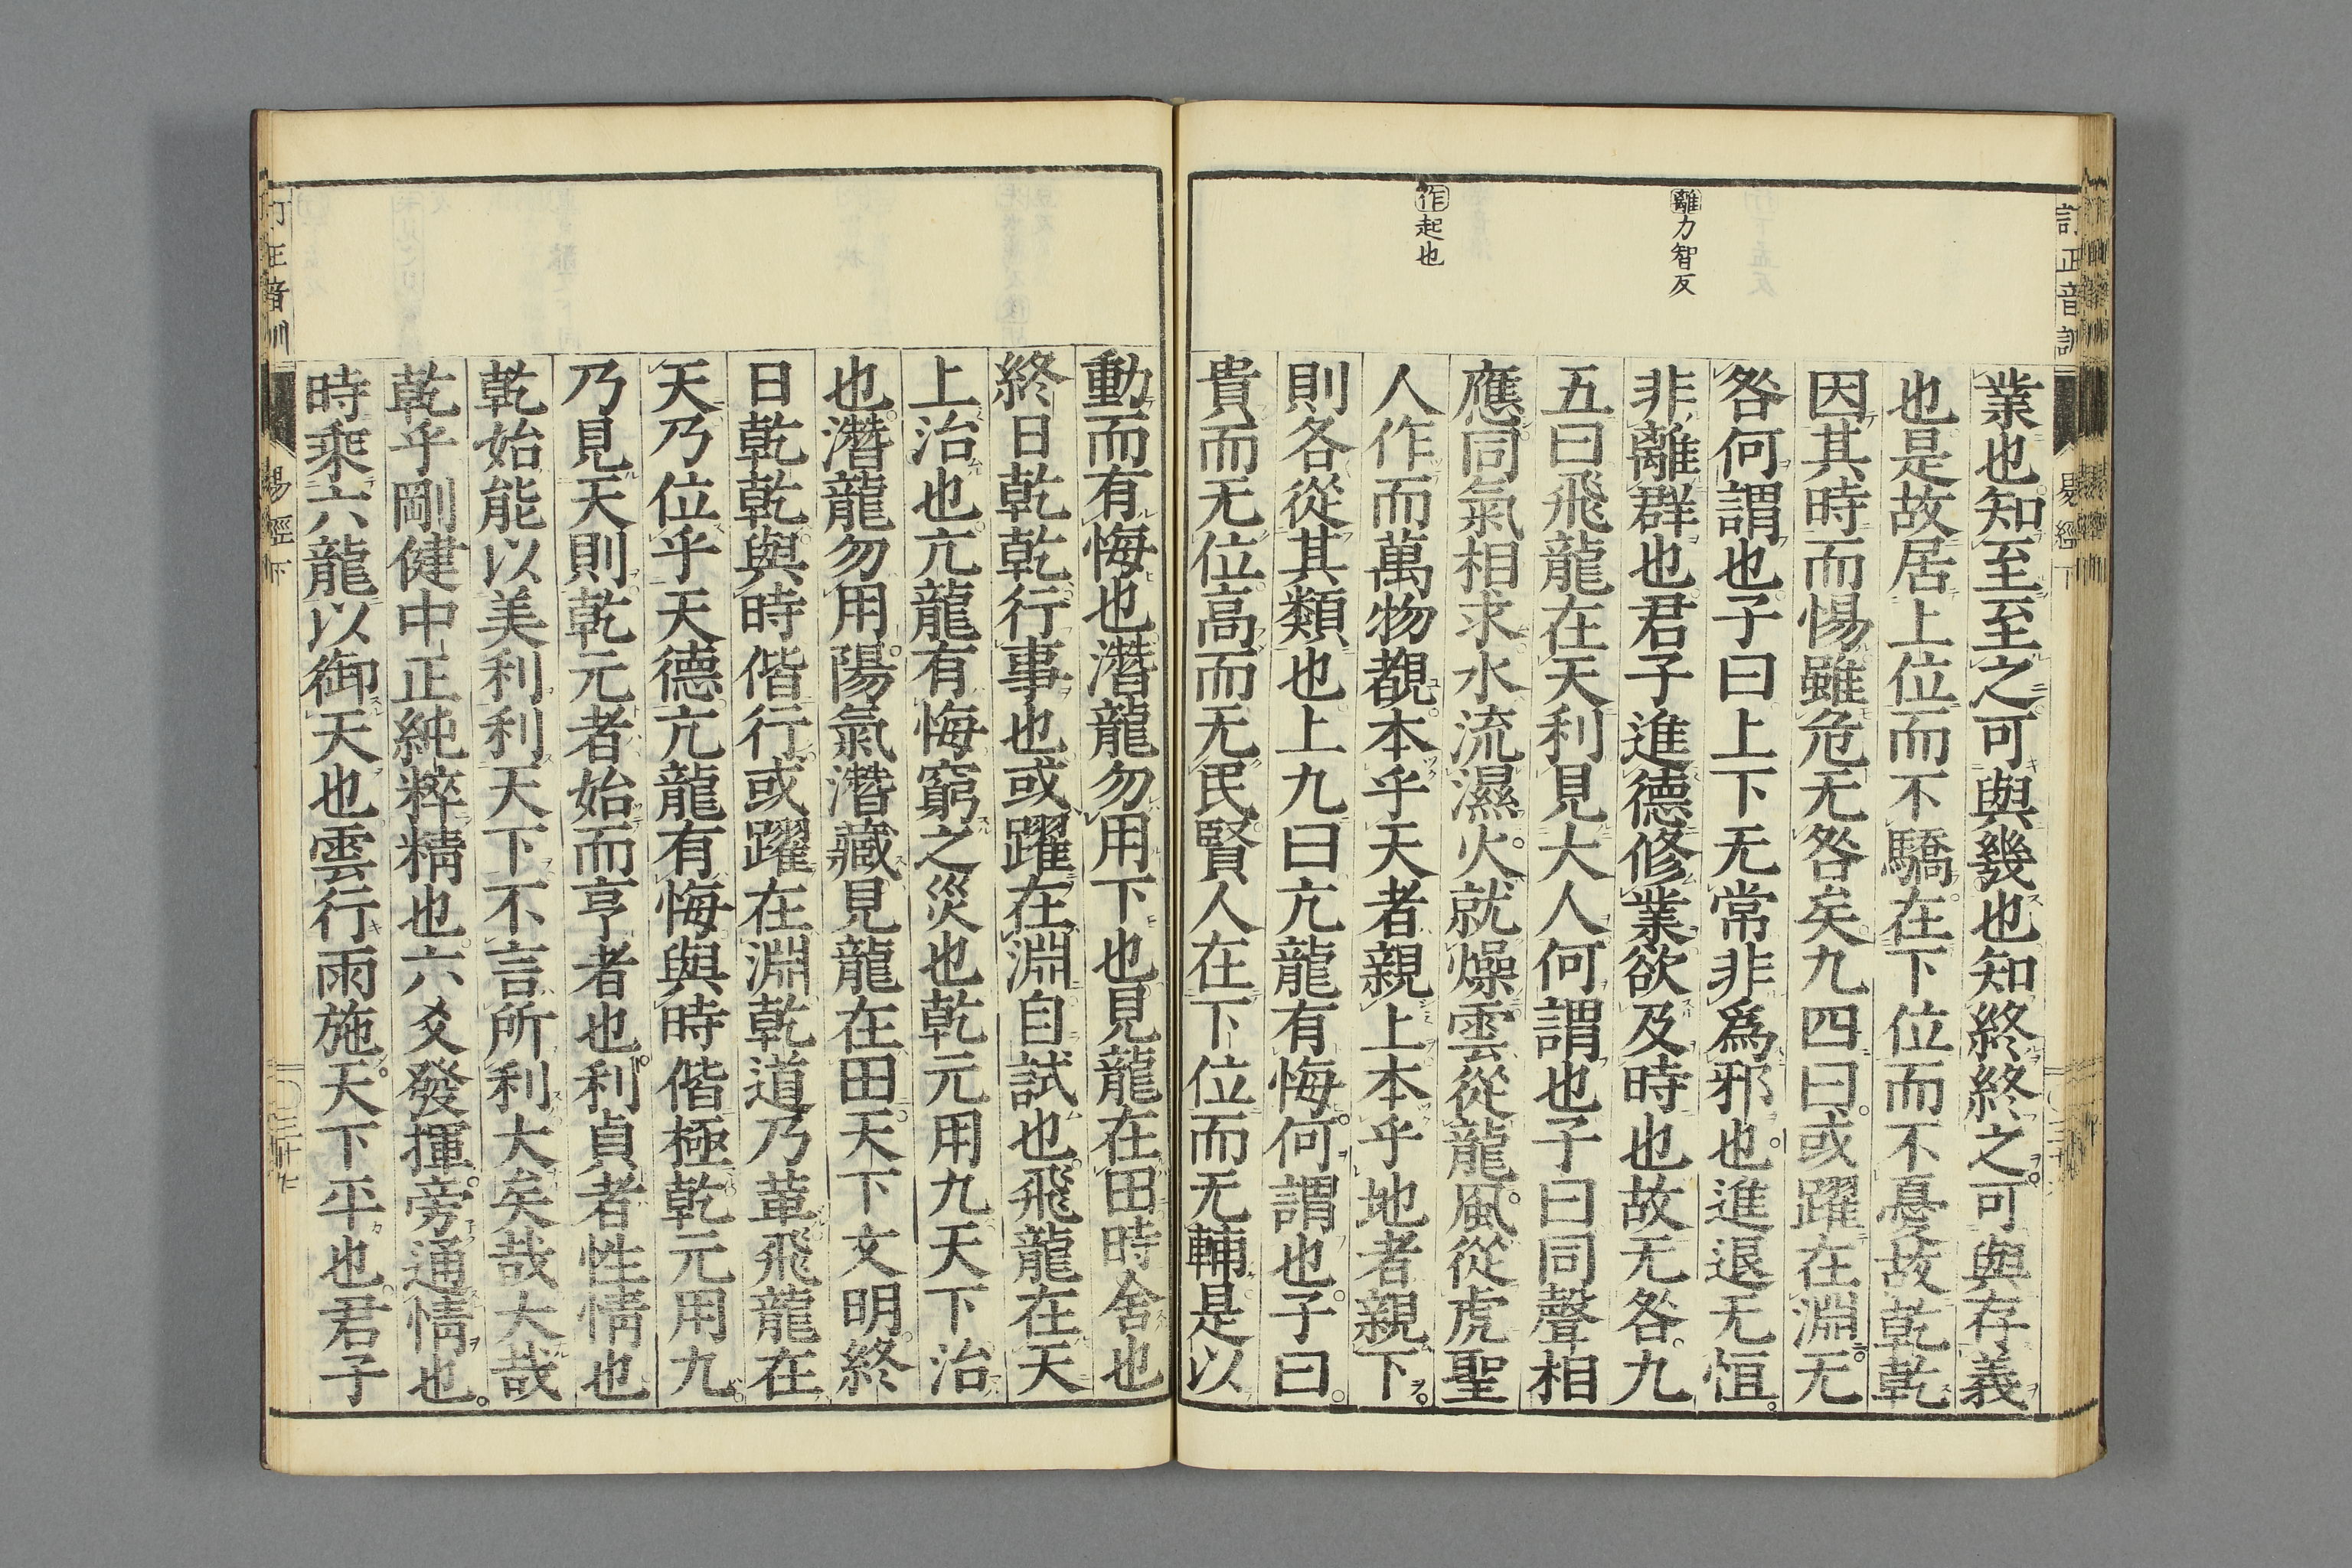 訂正音訓
易經下
離力智反
作起也
業也知至至之可與幾也知終終之可與存義
也是故居上位而不驕在下位而不憂故乾乾
因其時而惕雖危无咎矣九四曰或躍在淵无
咎何謂也子曰上下无常非爲邪也進退无恒
非離群也君子進德修業欲及時也故无咎九
五曰飛龍在天利見大人何謂也子曰同聲相
應同氣相求水流濕火就燥雲從龍風從虎聖
人作而萬物覩本乎天者親上本乎地者親下
則各從其類也上九曰亢龍有悔何謂也子曰
貴而无位高而无民賢人在下位而无輔是以
動而有悔也潛龍勿用下也見龍在田時舍也
終日乾乾行事也或躍在淵自試也飛龍在天
上治也亢龍有悔窮之災也乾元用九天下治
也潛龍勿用陽氣潛藏見龍在田天下文明終
日乾乾與時偕行或躍在淵乾道乃革飛龍在
天乃位乎天德亢龍有悔與時偕極乾元用九
乃見天則乾元者始而亨者也利貞者性情也
乾始能以美利利天下不言所利大矣哉大哉
乾乎剛健中正純粹精也六爻發揮旁通情也
時乘六龍以御天也雲行雨施天下平也君子
訂正音訓
易經下